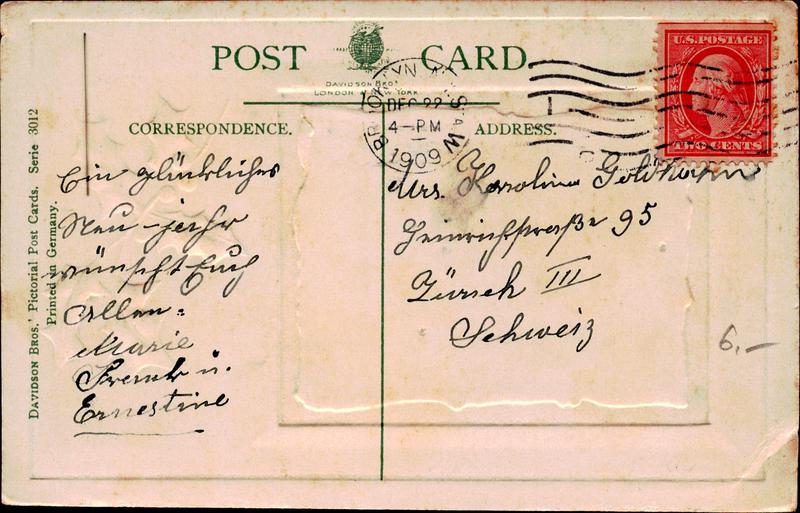 POST CARD.
DAVIDSON BROS.
LONDON & NEW YORK
CORRESPONDENCE.
ADDRESS.
DAVIDSON BROS.' Pictorial Post Cards. Serie 3012
Printed in Germany.
U.S. POSTAGE
TWO CENTS
DEC 22
4-PM
1909
Ein glückliches
Neu-jahr
wünscht Euch
Allen:
Marie
Frank u.
Ernestine
Mrs. Karolina
Heinrichstraße 95
Zürich III
Schweiz
6.-